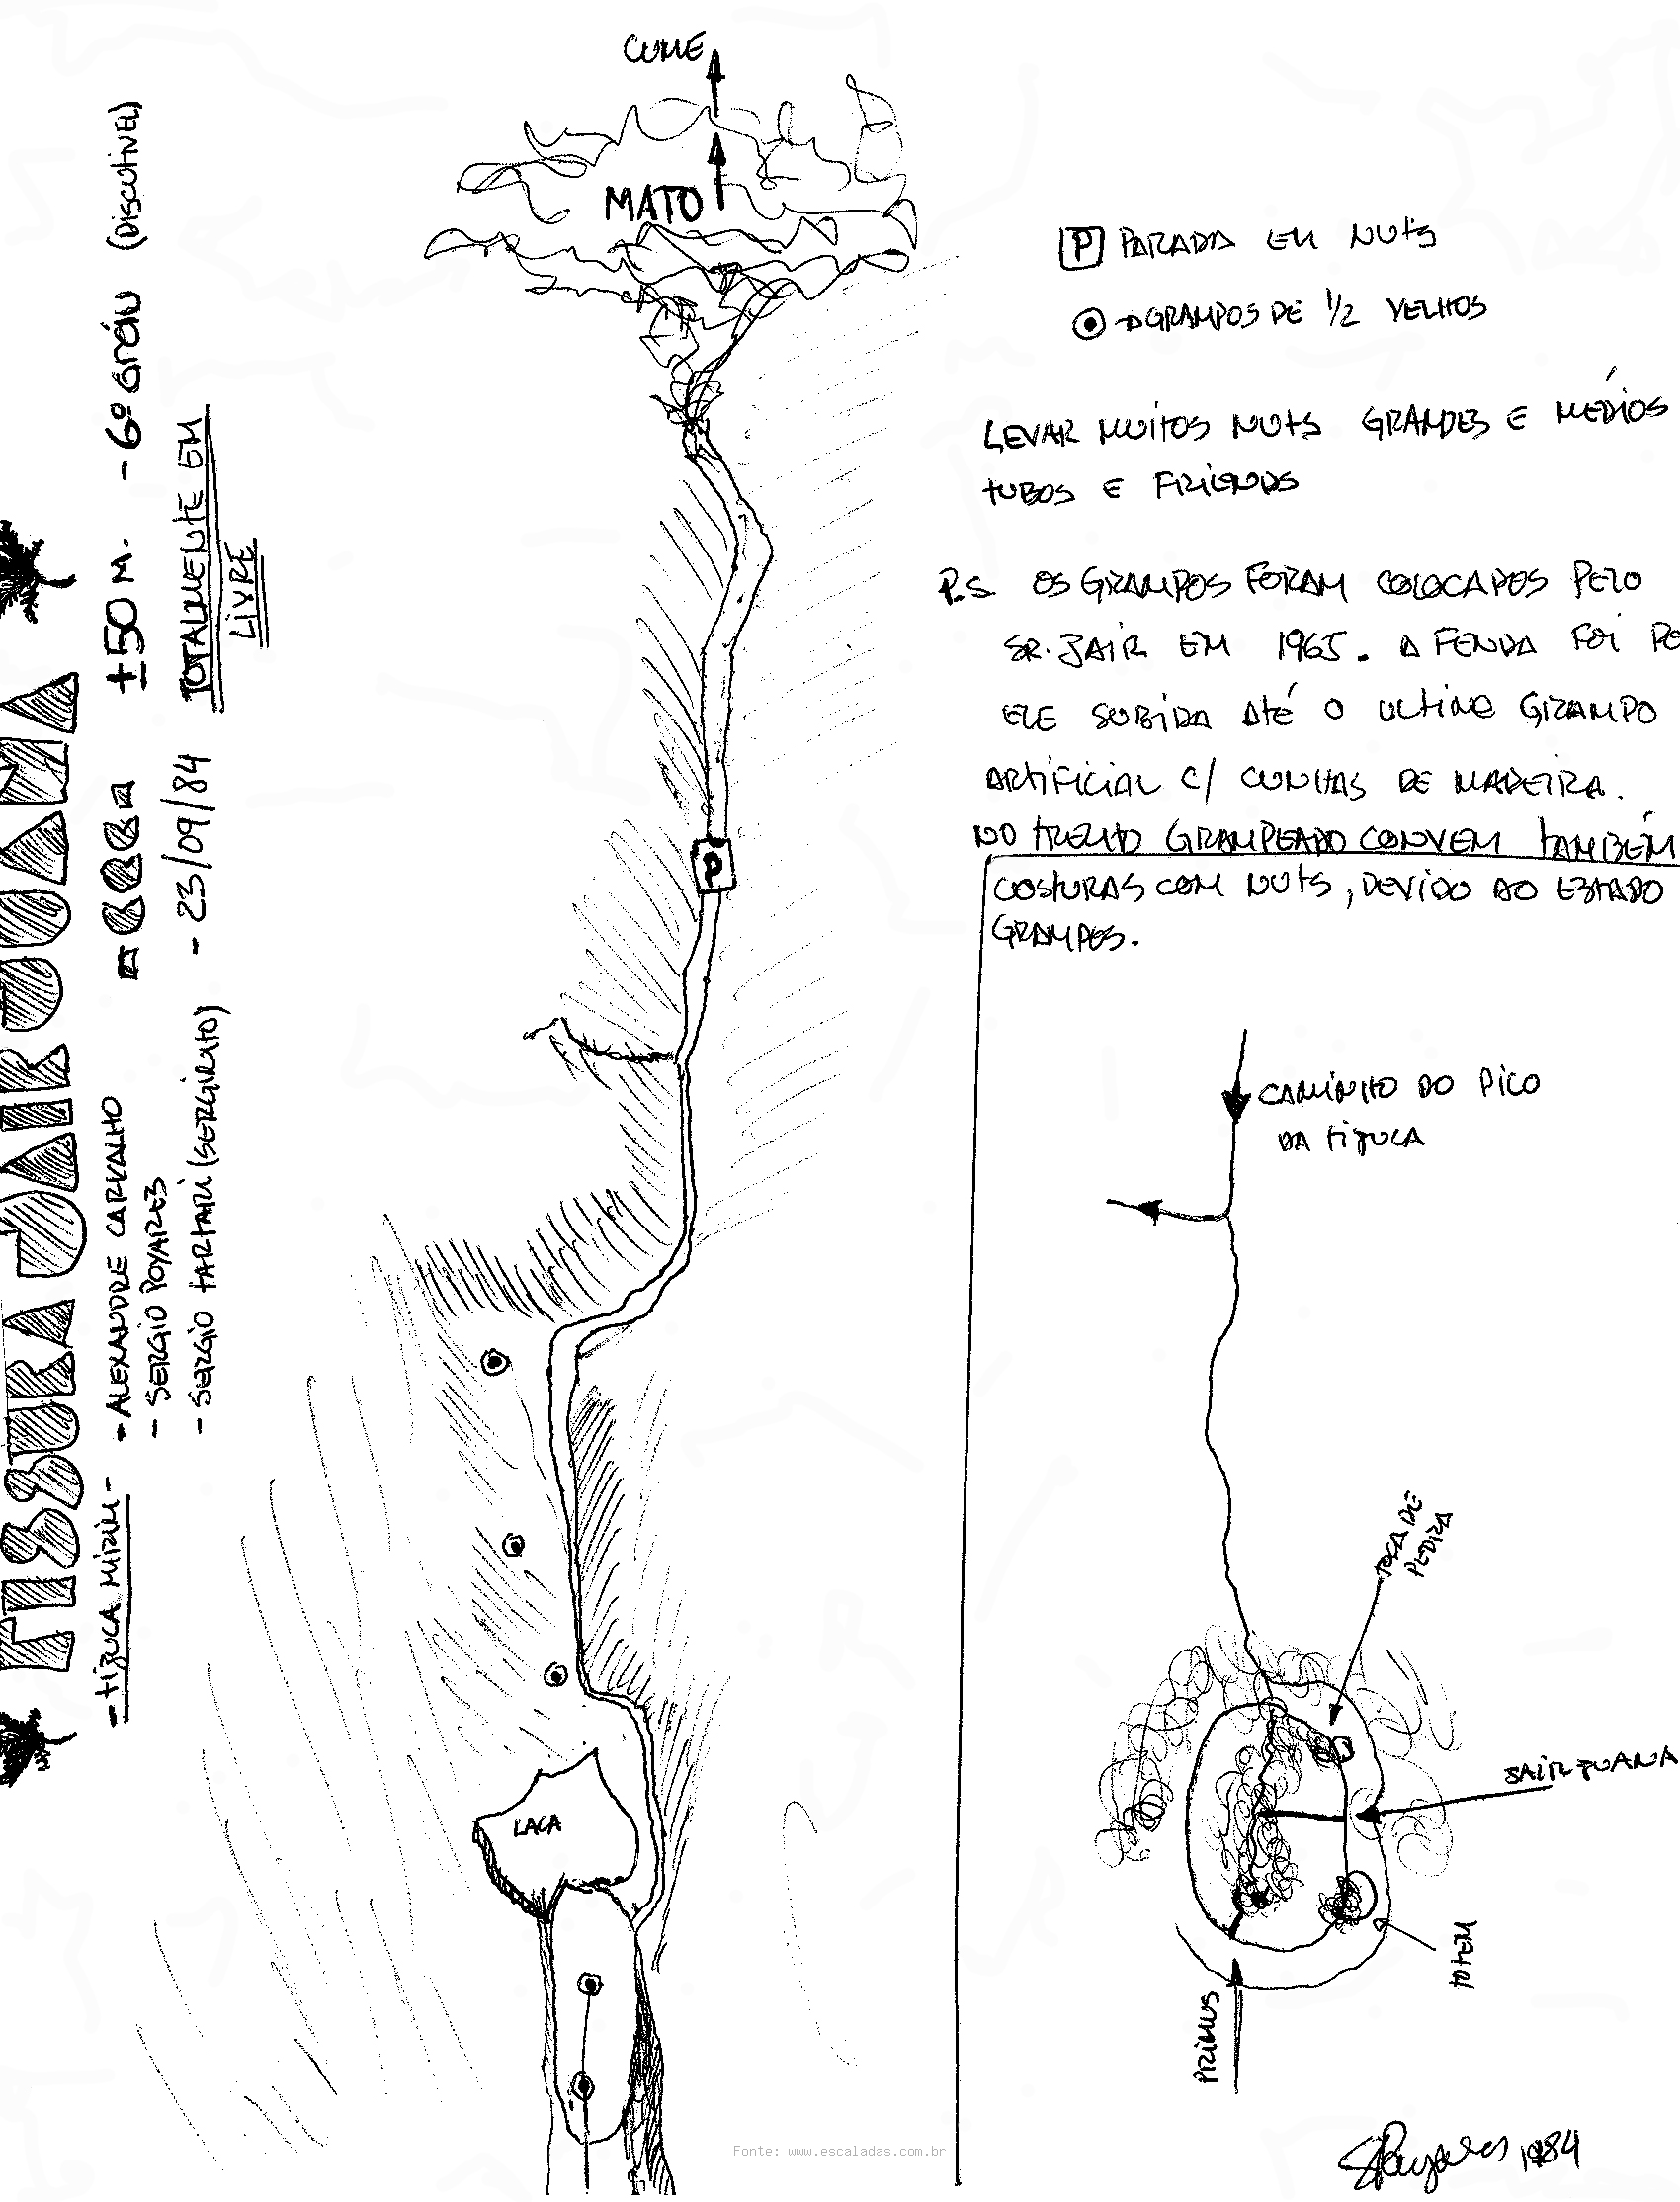 FISSURA JAIR JOANA
- TIJUCA MIRIM -
- ALEXANDRE CARVALHO
- SERGIO POYARES
- SERGIO TARTARI (SERGINHO)
- 23/09/84
±50 M. - 6º GRÁU (DISCUTIVEL)
TOTALMENTE EM
LIVRE
CUME
MATO
P
LACA
P PARADA EM NUTS
GRAMPOS DE 1/2 VELHOS
LEVAR MUITOS NUTS GRANDES E MÉDIOS
TUBOS E FRIENDS
P.S. OS GRAMPOS FORAM COLOCADOS PELO
SR. JAIR EM 1965. A FENDA FOI PO
ELE SUBIDA ATÉ O ULTIMO GRAMPO
ARTIFICIAL C/ CUNHAS DE MADEIRA.
NO TRECHO GRAMPEADO CONVEM TAMBÉM
COSTURAS COM NUTS, DEVIDO AO ESTADO
GRAMPOS.
CAMINHO DO PICO
DA TIJUCA
TOCA DE
PEDRA
JAIR JOANA
TOTEM
PRIMUS
SPoyares 1984
Fonte: www.escaladas.com.br